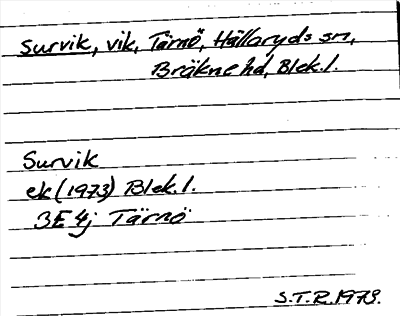 Survik, vik, Tärnö, Hällaryds sn,
Bräkne hd, Blek.l.
Survik
ek (1973) Blek.l.
3E 4j Tärnö
S.T.R. 1973.